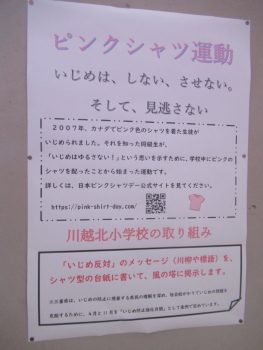 ピンクシャツ運動
いじめは、しない、させない。
そして、見逃さない
2007年、カナダでピンク色のシャツを着た生徒が
いじめられました。それを知った同級生が、
「いじめはゆるさない！」という思いを示すために、学校中にピンクの
シャツを配ったことから始まった運動です。
詳しくは、日本ピンクシャツデー公式サイトを見てください。
https://pink-shirt-day.com/
川越北小学校の取り組み
「いじめ反対」のメッセージ（川柳や標語）を、
シャツ型の台紙に書いて、風の塔に掲示します。